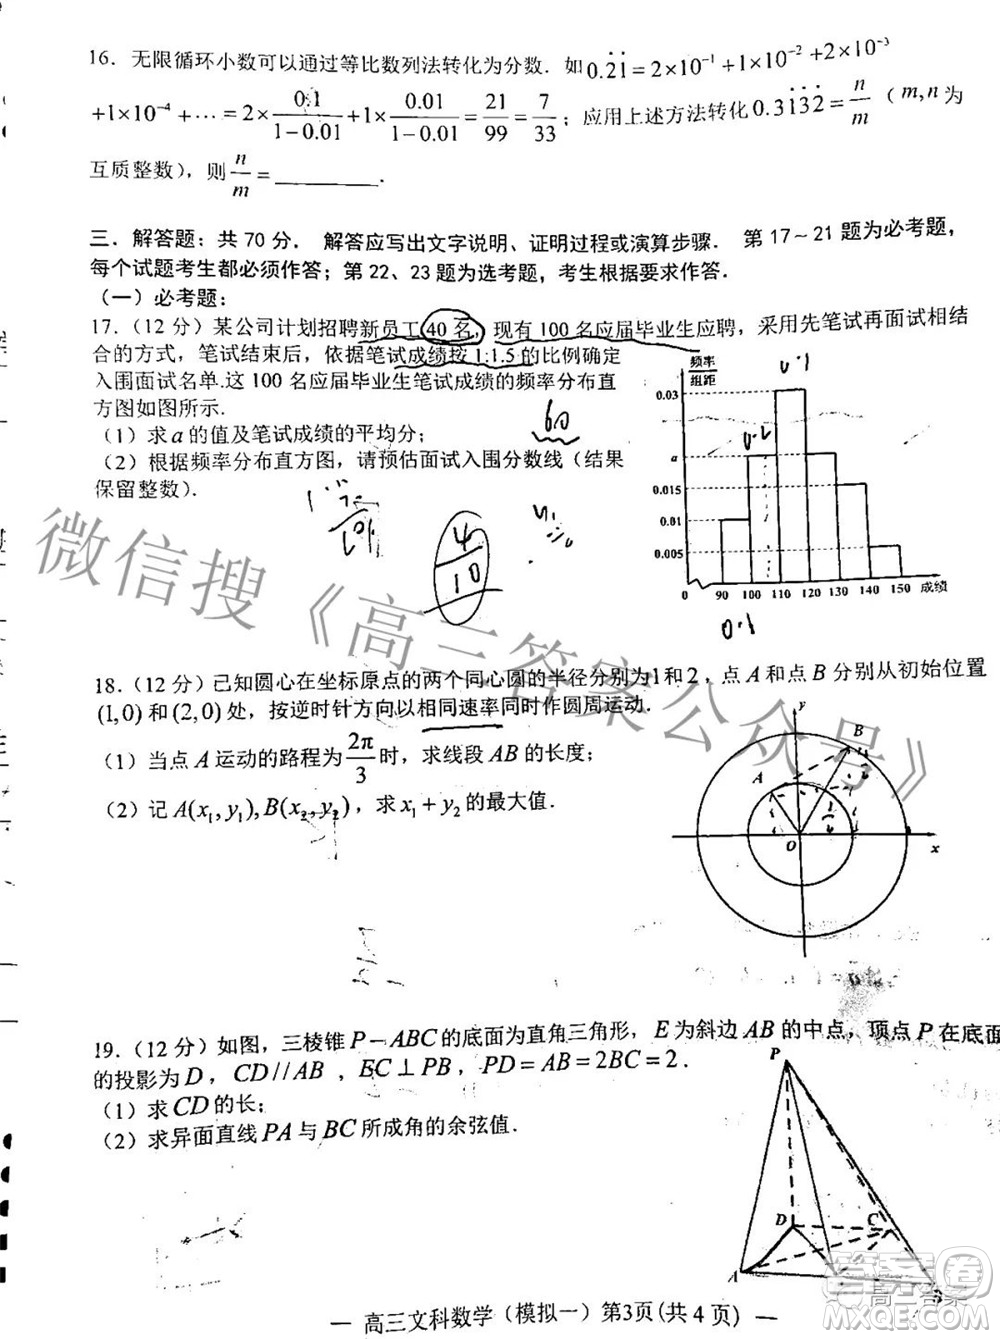 16．无限循环小数可以通过等比数列法转化为分数．如0.2̇1̇=2×10⁻¹+1×10⁻²+2×10⁻³
+1×10⁻⁴+⋯=2×0.1/(1−0.01)+1×0.01/(1−0.01)=21/99=7/33；应用上述方法转化0.31̇32̇=n/m（m,n为
互质整数），则n/m=________．
三．解答题：共70分． 解答应写出文字说明、证明过程或演算步骤． 第17～21题为必考题，
每个试题考生都必须作答；第22、23题为选考题，考生根据要求作答．
（一）必考题：
17．（12分）某公司计划招聘新员工40名，现有100名应届毕业生应聘，采用先笔试再面试相结
合的方式，笔试结束后，依据笔试成绩按1:1.5的比例确定
入围面试名单.这100名应届毕业生笔试成绩的频率分布直
方图如图所示．
（1）求a的值及笔试成绩的平均分；
（2）根据频率分布直方图，请预估面试入围分数线（结果
保留整数）．
频率/组距
0.03
a
0.015
0.01
0.005
0 90 100 110 120 130 140 150 成绩
0.1
0.2
0.1
60
4/10
微信搜《高三答案公众号》
18．（12分）已知圆心在坐标原点的两个同心圆的半径分别为1和2，点A和点B分别从初始位置
(1,0)和(2,0)处，按逆时针方向以相同速率同时作圆周运动．
（1）当点A运动的路程为2π/3时，求线段AB的长度；
（2）记A(x₁,y₁),B(x₂,y₂)，求x₁+y₂的最大值．
y
B
A
O
x
19．（12分）如图，三棱锥P−ABC的底面为直角三角形，E为斜边AB的中点，顶点P在底面
的投影为D，CD//AB，EC⊥PB，PD=AB=2BC=2．
（1）求CD的长；
（2）求异面直线PA与BC所成角的余弦值．
P
D
C
A
— 高三文科数学（模拟一）第3页(共4页) —